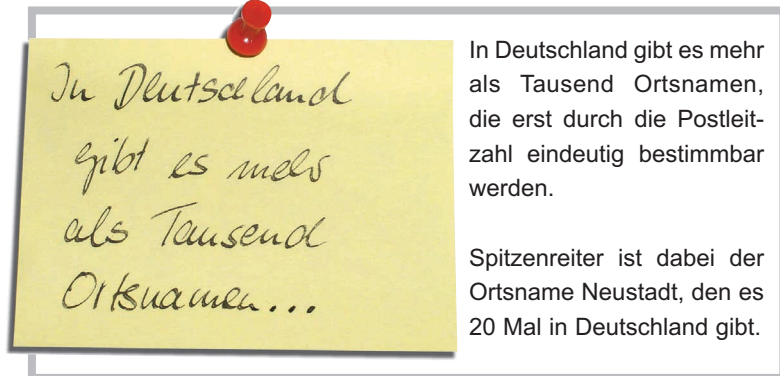 In Deutschland
gibt es mehr
als Tausend
Ortsnamen...
In Deutschland gibt es mehr
als Tausend Ortsnamen,
die erst durch die Postleit-
zahl eindeutig bestimmbar
werden.
Spitzenreiter ist dabei der
Ortsname Neustadt, den es
20 Mal in Deutschland gibt.